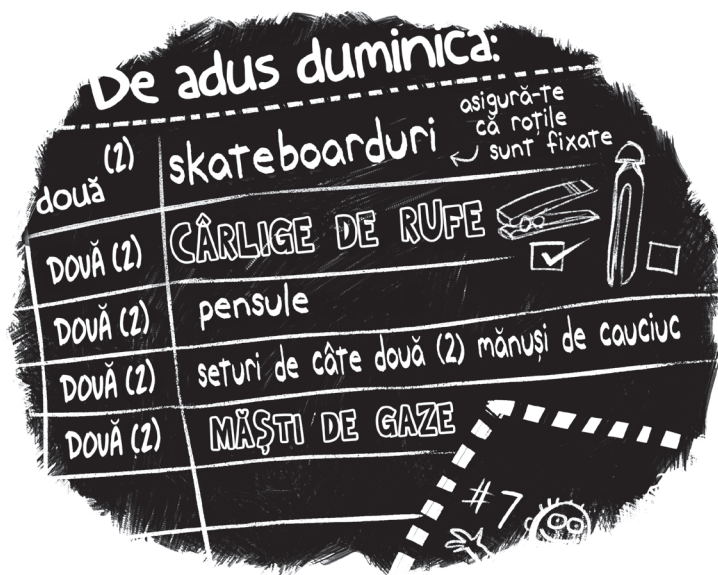 De adus duminica:
două (2) skateboarduri
asigură-te
că roțile
sunt fixate
DOUĂ (2) CÂRLIGE DE RUFE
DOUĂ (2) pensule
DOUĂ (2) seturi de câte două (2) mănuși de cauciuc
DOUĂ (2) MĂȘTI DE GAZE
#7